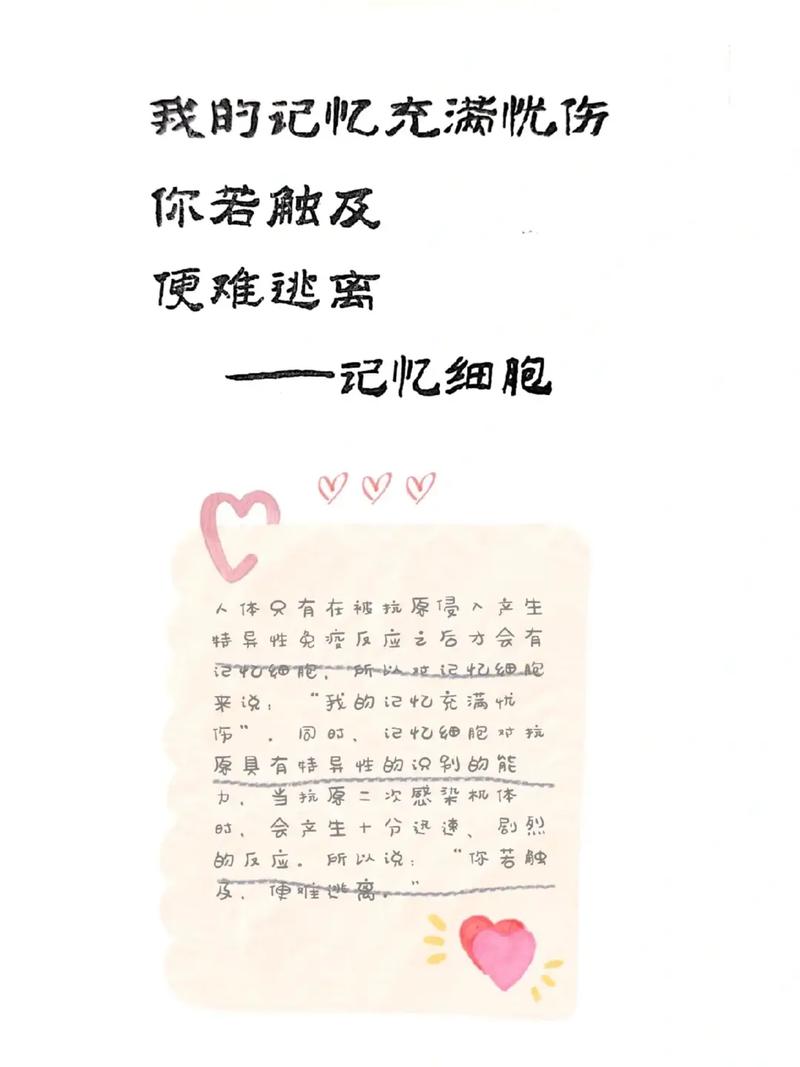 我的记忆充满忧伤
你若触及
便难逃离
——记忆细胞
人体只有在被抗原侵入产生
特异性免疫反应之后才会有
记忆细胞，所以对记忆细胞
来说：“我的记忆充满忧
伤”．同时、记忆细胞对抗
原具有特异性的识别的能
力．当抗原二次感染机体
时，会产生十分迅速、剧烈
的反应．所以说：“你若触
及，便难逃离．”